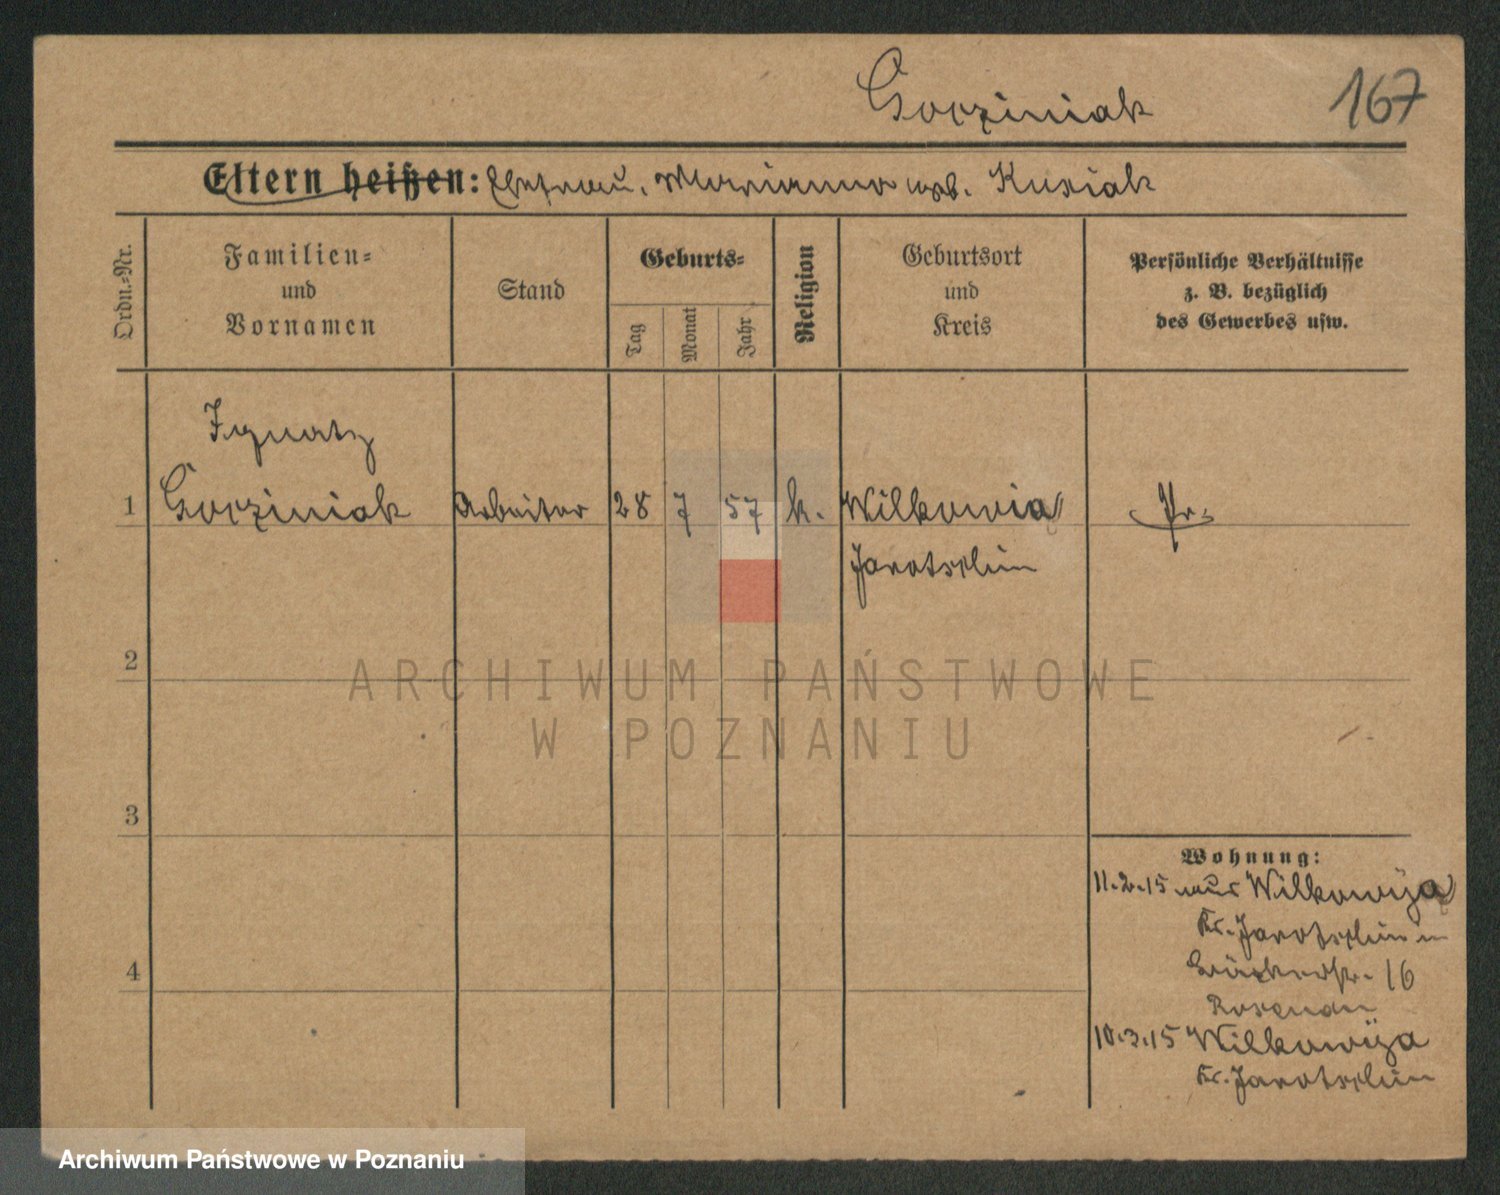 Gorziniak
167
Eltern heißen: Ehefrau, Marianna geb. Kusiak
Ordn.-Nr.
Familien-
und
Vornamen
Stand
Geburts-
Tag
Monat
Jahr
Religion
Geburtsort
und
Kreis
Persönliche Verhältnisse
z. B. bezüglich
des Gewerbes usw.
Ignatz
1 Gorziniak Arbeiter 28 7 57 k. Wilkowia Pr.
Jarotschin
2
ARCHIWUM PAŃSTWOWE
W POZNANIU
3
Wohnung:
11.2.15 aus Wilkowija
Kr. Jarotschin n
16
4
Rosenau
10.3.15 Wilkowija
Kr. Jarotschin
Archiwum Państwowe w Poznaniu